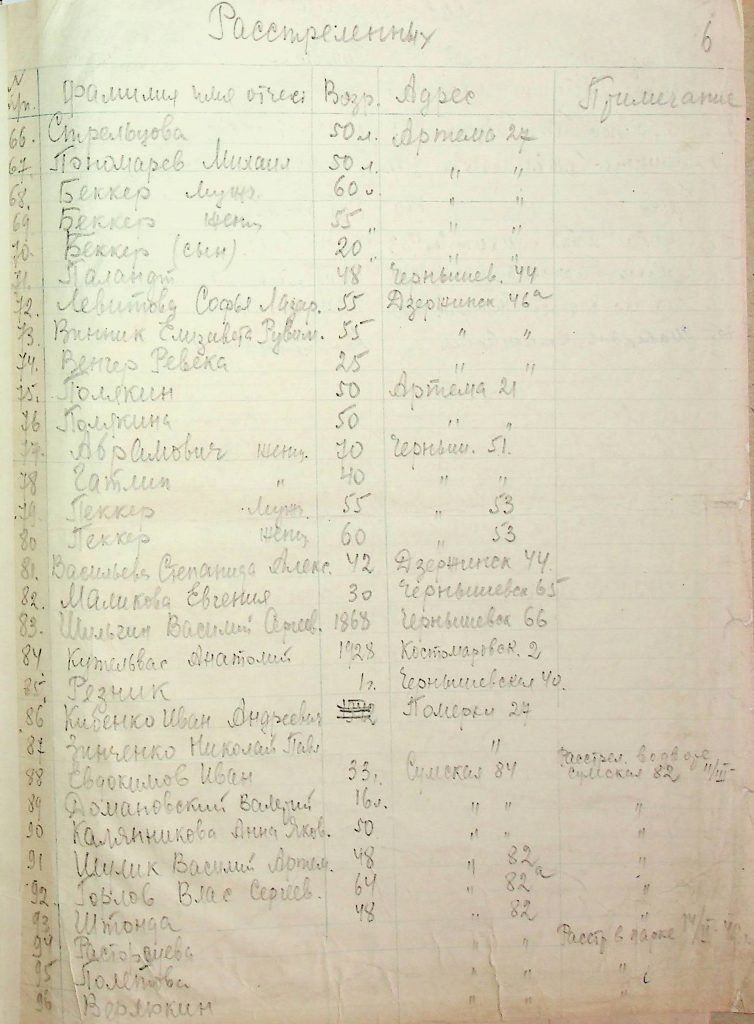 Расстреленных 6
№ п/п. Фамилия имя отчес Возр. Адрес Примечание
66. Стрельцова 50 л. Артема 27
67. Пономарев Михаил 50 л. " "
68. Беккер Мужч. 60 л. " "
69 Беккер Женщ 55 " " "
70. Беккер (сын) 20 " " "
71. Паландт 48 Чернышев. 44
72. Левитова Софья Лазар. 55 Дзержинск 46а
73. Винник Елизавета Рувим. 55 " "
74. Венгер Ревека 25 " "
75. Полякин 50 Артема 21
76 Полякина 50 " "
77. Абрамович женщ. 70 Черныш. 51.
78 Гатлип " 40 " "
79 Пеккер Мужч. 55 " 53
80 Пеккер женщ 60 " 53
81. Васильева Степанида Алекс. 42 Дзержинск 44.
82. Маликова Евгения 30 Чернышевск 65
83. Шильгин Василий Сергеев. 1868 Чернышевск 66
84 Кутельвас Анатолий 1928 Костомаровск. 2
85. Резник 1 г. Чернышевская 40.
86 Кивенко Иван Андреевич Померки 27
87 Зинченко Николай Павл "
88 Евдокимов Иван 33 г. Сумская 84 Расстрел. во дворе Сумская 82 "/III
89 Домановский Валерий 16 л. " " "
90 Калянникова Анна Яков. 50 " " "
91 Шулик Василий Артем. 48 " 82 "
92. Горлов Влас Сергеев. 64 " 82а "
93 Штонда 48 " 82 "
94 Расторгиева " " Расстр в парке 14/III
95 Полетова " " "
96 Верлюкин " " "